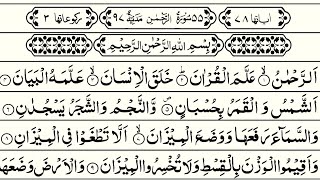 اٰیاتها ٧٨ ٥٥ سُوْرَةُ الرَّحْمٰنِ مَدَنِيَّةٌ ٩٧ رکوعاتها ٣
بِسْمِ اللّٰهِ الرَّحْمٰنِ الرَّحِيْمِ
اَلرَّحْمٰنُ ۙ﴿١﴾ عَلَّمَ الْقُرْاٰنَ ؕ﴿٢﴾ خَلَقَ الْاِنْسَانَ ۙ﴿٣﴾ عَلَّمَهُ الْبَيَانَ ﴿٤﴾
اَلشَّمْسُ وَ الْقَمَرُ بِحُسْبَانٍ ۪﴿٥﴾ وَّ النَّجْمُ وَ الشَّجَرُ يَسْجُدٰنِ ﴿٦﴾
وَ السَّمَآءَ رَفَعَهَا وَ وَضَعَ الْمِيْزَانَ ۙ﴿٧﴾ اَلَّا تَطْغَوْا فِي الْمِيْزَانِ ﴿٨﴾
وَ اَقِيْمُوا الْوَزْنَ بِالْقِسْطِ وَ لَا تُخْسِرُوا الْمِيْزَانَ ﴿٩﴾ وَ الْاَرْضَ وَضَعَهَا